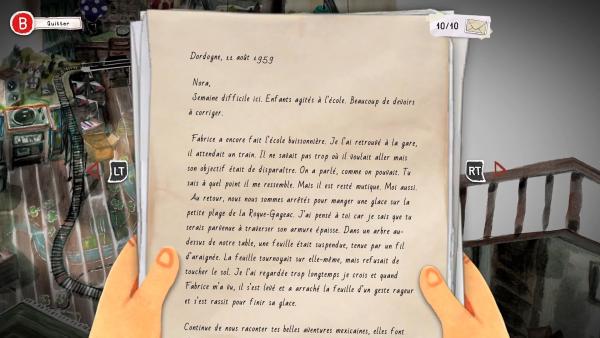 B Quitter
10/10
LT
RT
Dordogne, 11 août 1959
Nora,
Semaine difficile ici. Enfants agités à l'école. Beaucoup de devoirs
à corriger.
Fabrice a encore fait l'école buissonnière. Je l'ai retrouvé à la gare,
il attendait un train. Il ne savait pas trop où il voulait aller mais
son objectif était de disparaître. On a parlé, comme on pouvait. Tu
sais à quel point il me ressemble. Mais il est resté mutique. Moi aussi.
Au retour, nous nous sommes arrêtés pour manger une glace sur la
petite plage de la Roque-Gageac. J'ai pensé à toi car je sais que tu
serais parvenue à traverser son armure épaisse. Dans un arbre au-
dessus de notre table, une feuille était suspendue, tenue par un fil
d'araignée. La feuille tournoyait sur elle-même, mais refusait de
toucher le sol. Je l'ai regardée trop longtemps je crois et quand
Fabrice m'a vu, il s'est levé et a arraché la feuille d'un geste rageur
et s'est rassis pour finir sa glace.
Continue de nous raconter tes belles aventures mexicaines, elles font